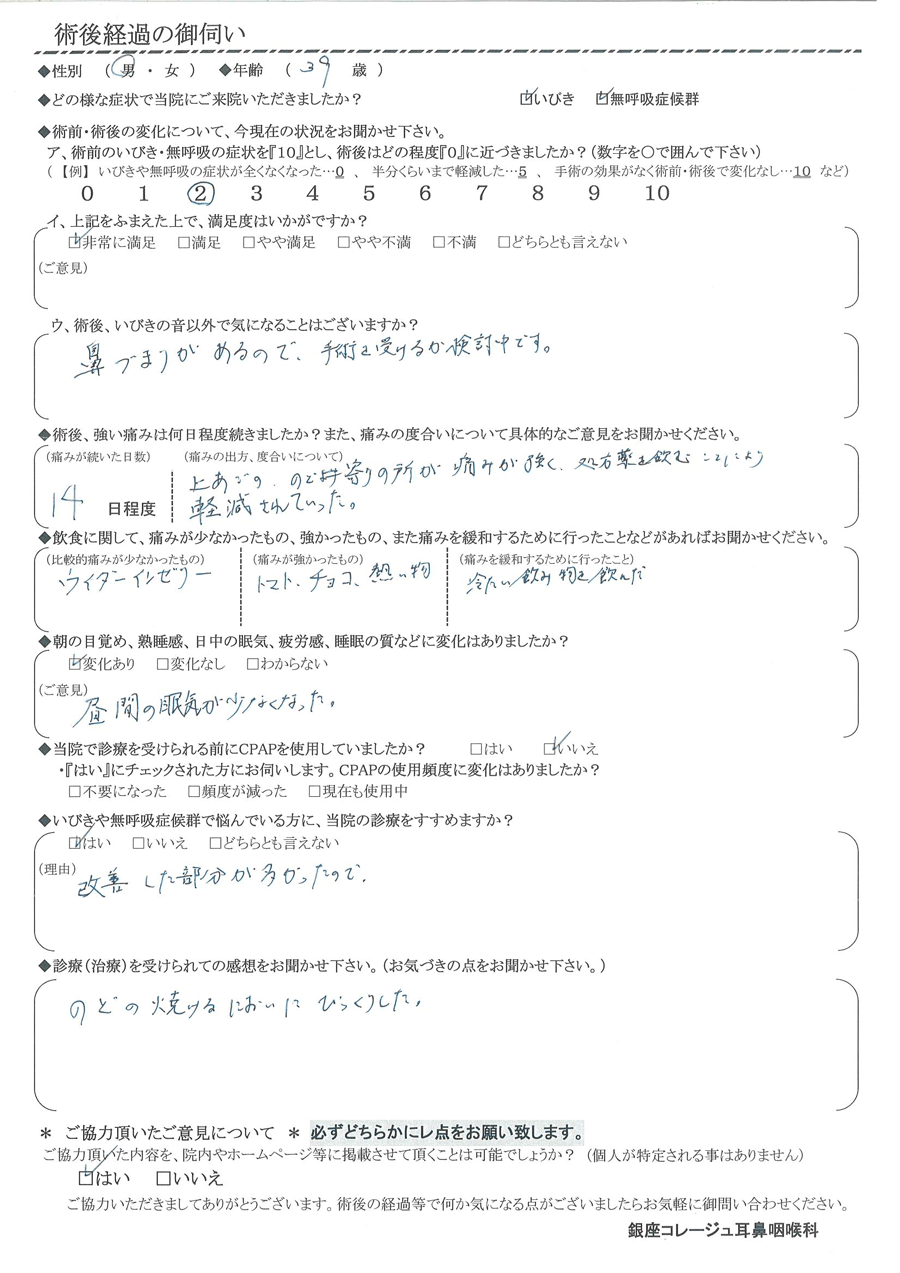 術後経過の御伺い
◆性別 （ 男 ・ 女 ） ◆年齢 （ 39 歳 ）
◆どの様な症状で当院にご来院いただきましたか？ ☑いびき ☑無呼吸症候群
◆術前・術後の変化について、今現在の状況をお聞かせ下さい。
ア、術前のいびき・無呼吸の症状を『10』とし、術後はどの程度『0』に近づきましたか？（数字を〇で囲んで下さい）
（ 【例】 いびきや無呼吸の症状が全くなくなった…0 、 半分くらいまで軽減した…5 、 手術の効果がなく術前・術後で変化なし…10 など）
0 1 ② 3 4 5 6 7 8 9 10
イ、上記をふまえた上で、満足度はいかがですか？
☑非常に満足 □満足 □やや満足 □やや不満 □不満 □どちらとも言えない
（ご意見）
ウ、術後、いびきの音以外で気になることはございますか？
鼻づまりがあるので、手術を受けるか検討中です。
◆術後、強い痛みは何日程度続きましたか？また、痛みの度合いについて具体的なご意見をお聞かせください。
（痛みが続いた日数） （痛みの出方、度合いについて）
上あごの、のど寄りの所が痛みが強く、処方薬を飲むことにより
14 日程度 軽減されていった。
◆飲食に関して、痛みが少なかったもの、強かったもの、また痛みを緩和するために行ったことなどがあればお聞かせください。
（比較的痛みが少なかったもの） （痛みが強かったもの） （痛みを緩和するために行ったこと）
ウイダーインゼリー トマト、チョコ、熱い物 冷たい飲み物を飲んだ
◆朝の目覚め、熟睡感、日中の眠気、疲労感、睡眠の質などに変化はありましたか？
☑変化あり □変化なし □わからない
（ご意見）
昼間の眠気が少なくなった。
◆当院で診療を受けられる前にCPAPを使用していましたか？ □はい ☑いいえ
・『はい』にチェックされた方にお伺いします。CPAPの使用頻度に変化はありましたか？
□不要になった □頻度が減った □現在も使用中
◆いびきや無呼吸症候群で悩んでいる方に、当院の診療をすすめますか？
☑はい □いいえ □どちらとも言えない
（理由）
改善した部分が多かったので。
◆診療（治療）を受けられての感想をお聞かせ下さい。（お気づきの点をお聞かせ下さい。）
のどの焼けるにおいにびっくりした。
＊ ご協力頂いたご意見について ＊ 必ずどちらかにレ点をお願い致します。
ご協力頂いた内容を、院内やホームページ等に掲載させて頂くことは可能でしょうか？ （個人が特定される事はありません）
☑はい □いいえ
ご協力いただきましてありがとうございます。術後の経過等で何か気になる点がございましたらお気軽に御問い合わせください。
銀座コレージュ耳鼻咽喉科